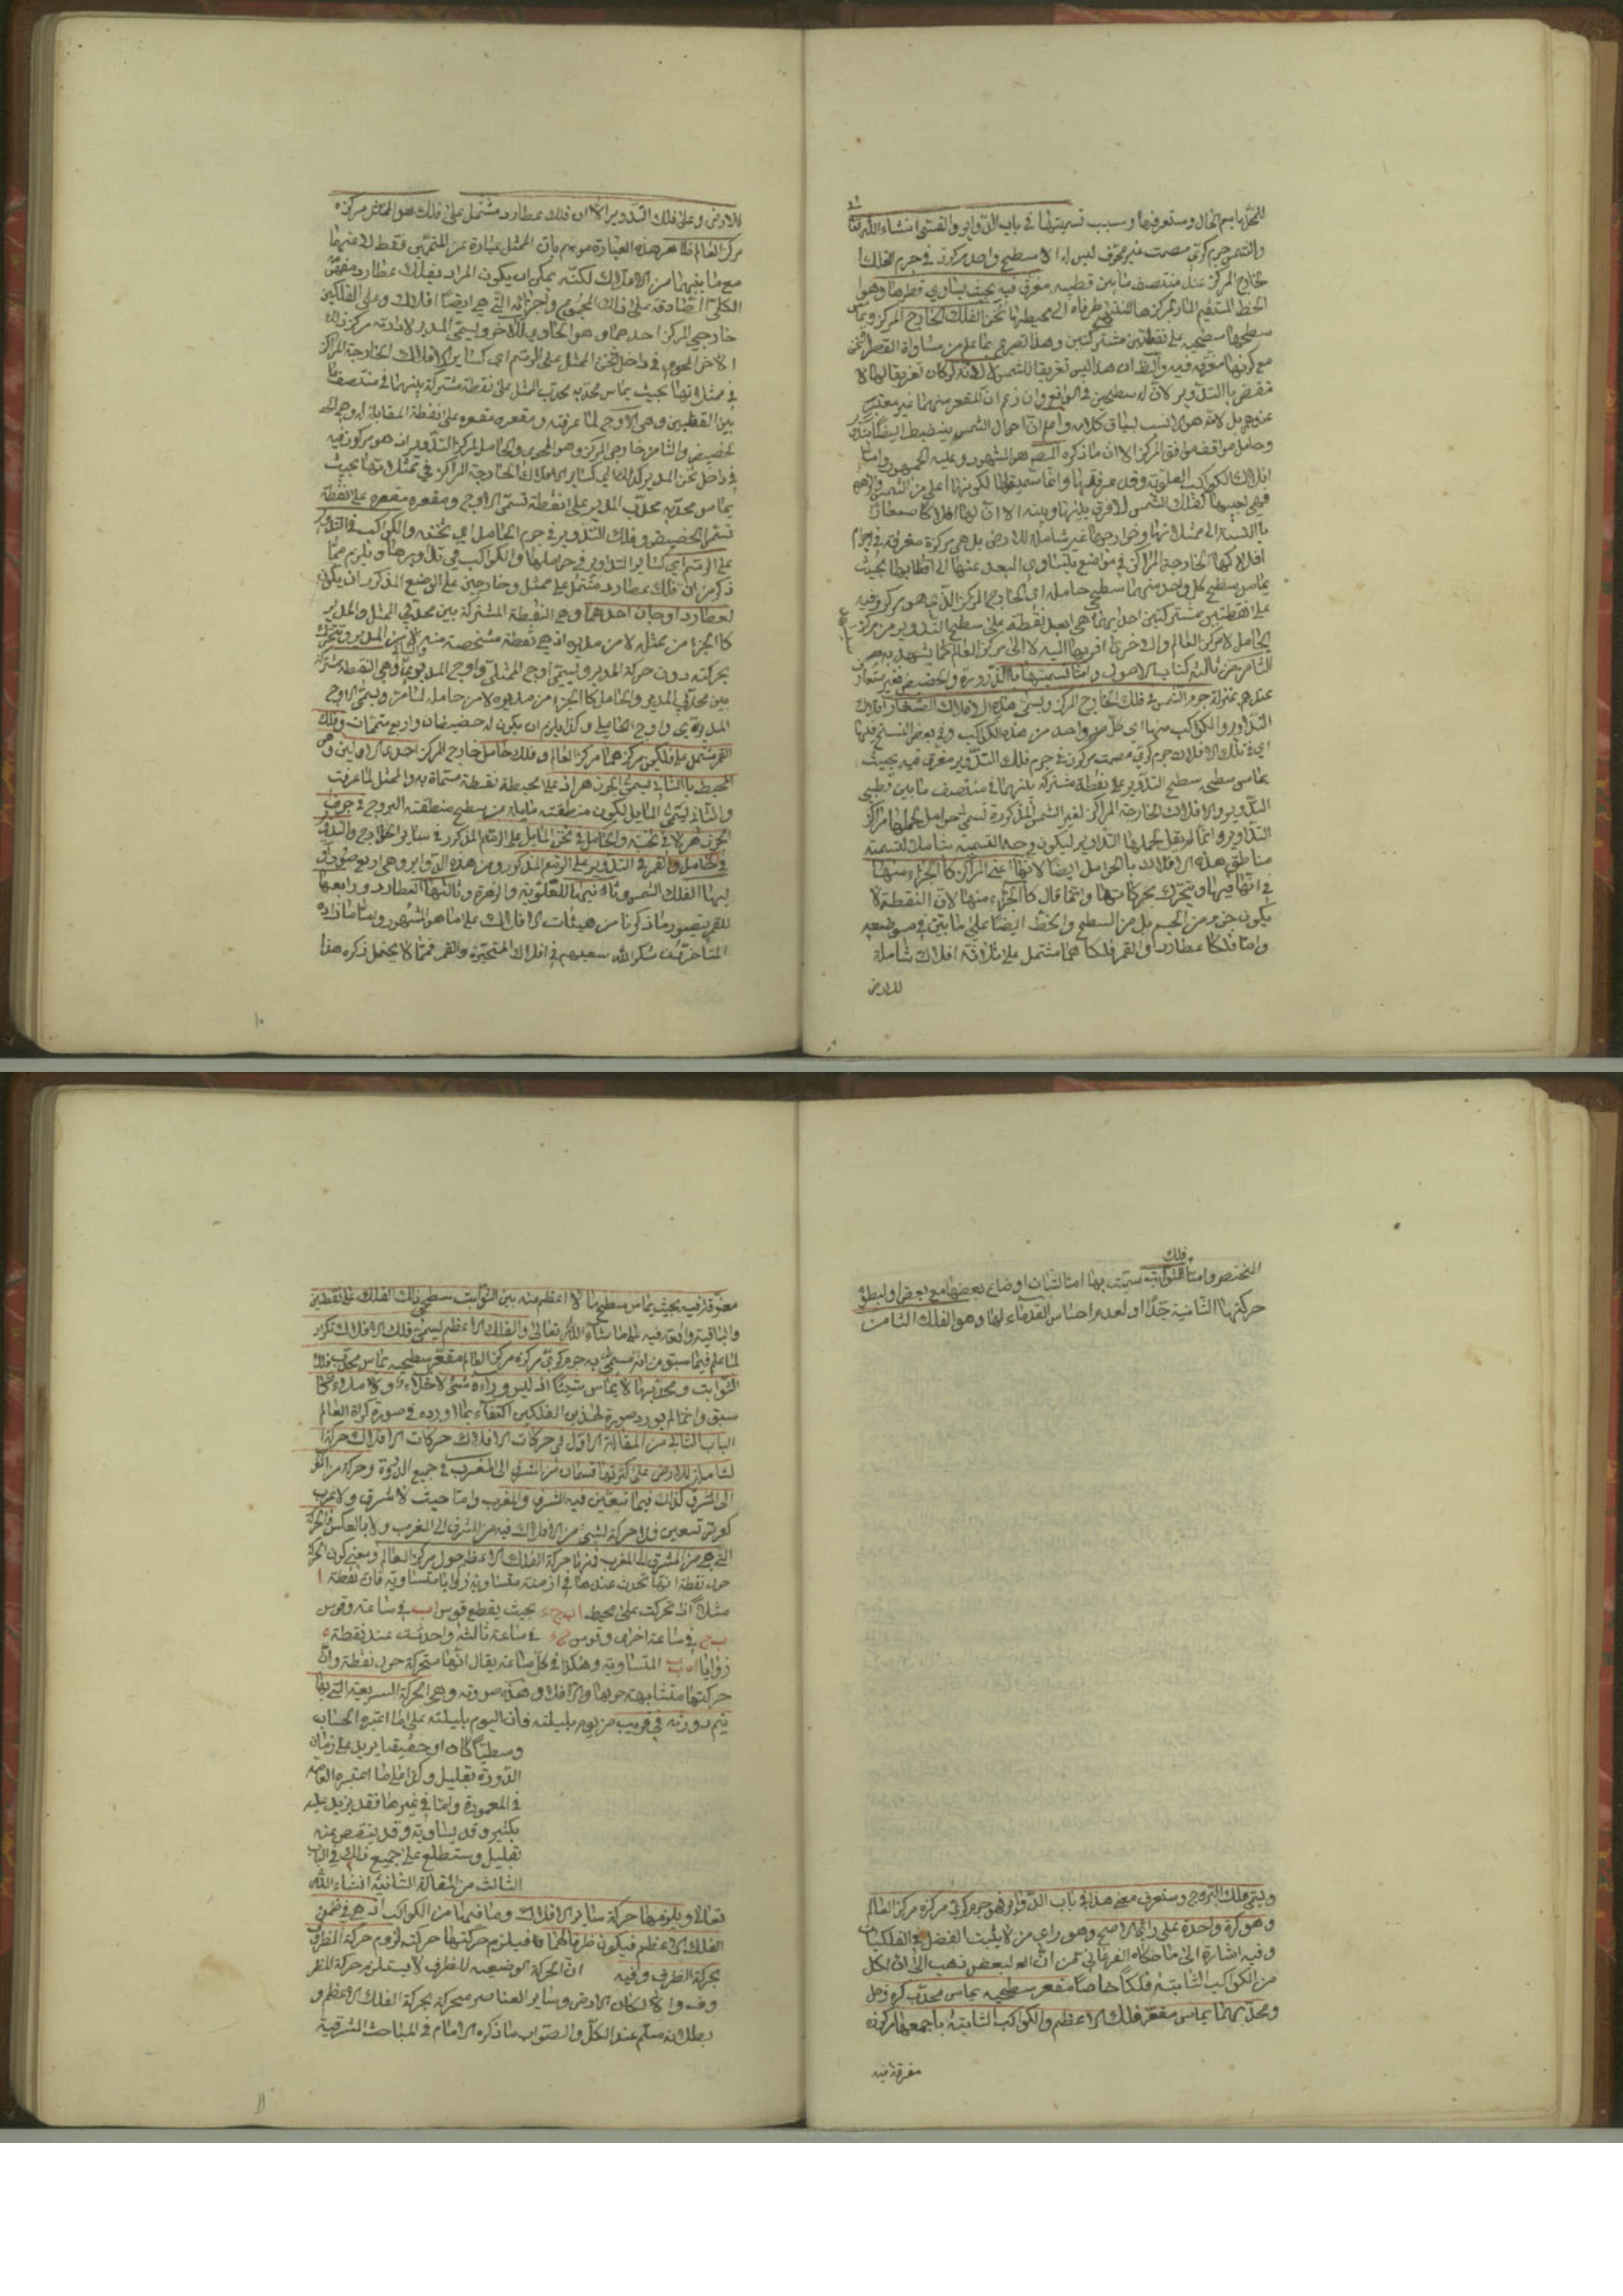 للتحرير باسم الحال وستعرفها وسبب تسميتها في باب الدوائر والقسي انشاء الله تعالى
والشمس جرم كري مصمت غير مجوف ليس له الا سطح واحد مركوز في جرم الفلك
خارج المركز عند منتصف ما بين قطبيه مغرق فيه بحيث يساوي قطرها وهو
الخط المستقيم المار بمركزها المنتهي طرفاه الى محيطها ثخن الفلك الخارج المركز ويماس
سطحها سطحيه على نقطتين مشتركتين وهذا تصريح بما علم من مساواة القطر الثخن
مع كونها مغرقة فيه والظ ان هذا ليس تعريفا للشمس لانه لو كان تعريفا لها لا
نتقض بالتدوير لان له سطحين في الواقع وان زعم ان المقعر منهما غير معتبر
وحامل موافق المركز الا ان ما ذكره المصـ هو المشهور وعليه الجمهور واما
افلاك الكواكب العلوية وقد عرفتها وانما سميت بها لكونها اعلى من الشمس والزهرة
فهي بعينها كفلك الشمس لا فرق بينها وبينه الا ان لها افلاكا صغارا
بالنسبة الى ممثلاتها وخوارجها غير شاملة للارض بل هي مركوزة مغرقة في اجرام
افلاكها الخارجة المراكز في مواضع يتساوى البعد عنها الى اقطابها بحيث
يماس سطح كل واحد منهما سطحي حامله اي الخارج المركز الذي هو مركوز فيه
على نقطتين مشتركتين احديهما هي ابعد نقطة على سطح التدوير من مركز
الحامل لا مركز العالم والاخرى اقربها اليه لا الى مركز العالم كما يشهد به
الثامن من ثالثة كتاب الاصول واما تسميتها بالذروة والحضيض فغير متعارف
عندهم بمنزلة جرم الشمس في فلك الخارج المركز ويسمى هذه الافلاك الصغار افلاك
التداوير والكواكب منها اي كل واحد من هذه الكواكب وفي بعض النسخ فيها
اي في تلك الافلاك جرم كري مصمت مركوز في جرم فلك التدوير مغرق فيه بحيث
يماس سطحه سطح التدوير على نقطة مشتركة بينهما في منتصف ما بين قطبي
التدوير والافلاك الخارجة المراكز لغير الشمس المذكورة تسمى حوامل لحملها مراكز
التداوير وانما لم يقل لحملها التداوير ليكون وجه التسمية شاملا لتسمية
مناطق هذه الافلاك بالحوامل ايضا لانها اعني المراكز كالجزء منها
في انها فيها وتتحرك بحركاتها وانما قال كالجزء منها لان النقطة لا
يكون جزء من الجسم بل من السطح والخط ايضا على ما بين في موضعه
واما فلكا عطارد والقمر فلكاهما مشتمل على ثلاثة افلاك شاملة
للارض
للارض وعلى فلك التدوير الا ان فلك عطارد مشتمل على فلك هو الممثل مركزه
مركز العالم ظاهر هذه العبارة موهم بان الممثل عبارة عن المتممين فقط لا عنهما
مع ما بينهما من الافلاك لكنه يمكن ان يكون المراد بفلك عطارد مفهومه
الكلي الصادق على ذلك المجموع واجزائه التي هي ايضا افلاك وعلى الفلكين
خارجي المركز احدهما وهو الحاوي للآخر ويسمى المدير لادارته مركز ذلك
الاخر المحوي في داخل ثخن الممثل على الرسم اي كسائر الافلاك الخارجة المراكز
في ممثلاتها بحيث يماس محدبه محدب الممثل على نقطة مشتركة بينهما في منتصف ما
بين القطبين وهي الاوج لما عرفته ومقعره مقعره على نقطة المقابلة له وهي
الحضيض والثاني خارجي المركز وهو المحوي والحامل لمركز التدوير اذ هو مركوز فيه
في داخل ثخن المدير كذلك اي كسائر الافلاك الخارجة المراكز في ممثلاتها بحيث
يماس محدبه محدب المدير على نقطة تسمى الاوج ومقعره مقعره على نقطة
تسمى الحضيض وفلك التدوير في جرم الحامل اي ثخنه والكواكب في التدوير
على الرسم اي كسائر التداوير في حواملها والكواكب في تداويرها ويلزم مما
ذكر من ان فلك عطارد مشتمل على ممثل وخارجين على الوضع المذكور ان يكون
لعطارد اوجان احدهما وهي النقطة المشتركة بين محدبي الممثل والمدير
كالجزء من ممثله لا من مديره اذ هي نقطة متشخصة منه لا من المدير ويتحرك
بحركته دون حركة المدير ويسمى اوج الممثلي واوج المدير والثاني وهي النقطة المشتركة
بين محدبي المدير والحامل كالجزء من مديره لا من حامله لما مر ويسمى الاوج
المديري واوج الحامل وكذا يلزم ان يكون له حضيضان واربع متممات وفلك
القمر مشتمل على فلكين مركزهما مركز العالم وفلك حامل خارج المركز احدى الاولين وهو
المحيط بالثاني يسمى الجوزهر اذ على محيطه نقطة مسماة به والممثل لما عرفت
والثاني يسمى المايل لكون منطقته مايلة من سطح منطقة البروج في جوف
الجوزهر لا في ثخنه والحامل في ثخن المايل على الرسم المذكور في سائر الخوارج والتدوير
في الحامل والقمر في التدوير على الرسم المذكور ومن هذه الدوائر وهي اربع صور
ليها الفلك الشمس وثانيها للعلوية والزهرة وثالثها العطارد ورابعها
للقمر يتصور ما ذكرنا من هيئات الافلاك على ما هو المشهور واما ما زاده
المتاخرون شكر الله سعيهم في افلاك المتحيزة والقمر فمما لا يحتمل ذكره هذا
١٠
فلك
المختصر واما الثوابت سميت بها اما لثبات اوضاع بعضها مع بعض او لبطؤ
حركتها الثانية جدا او لعدم احساس القدماء لها وهو الفلك الثامن
ويسمى فلك البروج وستعرف معنى هذا في باب الدوائر فهو جرم كري مركزه مركز العالم
وهو كرة واحدة على رائ الاصح وهو راي من لا يثبت الفضل في الفلكيات
وفيه اشارة الى ما حكاه الفرغاني من ان البعض ذهب الى ان لكل
من الكواكب الثابتة فلكا خاصا مقعر سطحيه يماس محدب كرة زحل
ومحدبهما يماس مقعر فلك الاعظم والكواكب الثابتة باجمعها مركوزه
مغرقة فيه
مغرقة فيه بحيث يماس سطح ما لا اعظم منه بين الثوابت سطحي ذلك الفلك على نقطتين
والباقية واقعة فيه الى ما شاء الله تعالى والفلك الاعظم يسمى فلك الافلاك تكرار
لما علم فيما سبق من انه مسمى به جرم كري مركزه مركز العالم مقعر سطحيه يماس محدب فلك
الثوابت ومحدبها لا يماس شيئا اذ ليس وراءه شئ لا خلاء ولا ملاء كما
سبق وانما لم يورد صورة لهذين الفلكين اكتفاء بما اورده في صورة كرات العالم
الباب الثاني من المقالة الاولى في حركات الافلاك حركات الافلاك حركة
الشاملة للارض على كثرتها قسمان من الشرق الى المغرب في جميع الدورة وحركة من الغرب
الى الشرق كذلك فيما تتعين فيه الشرق والمغرب واما حيث لا شرق ولا غرب
كعرض تسعين فلا حركة لشئ من الافلاك فيه من المشرق الى المغرب ولا بالعكس فالحركة
التي هي من المشرق الى المغرب فمنها حركة الفلك الاعظم حول مركز العالم ومعنى كون الحركة
حول نقطة انها تحدث عندها في ازمنة متساوية زوايا متساوية فان نقطة ا
مثلا اذ تحركت على محيط ا ب ج ء بحيث يقطع قوس ا ب في ساعة وقوس
ب ج في ساعة اخرى وقوس ج ء في ساعة ثالثة واحدثت عند نقطة ه
زوايا المتساوية وهكذا في كل ساعة يقال انها متحركة حول نقطة وان
حركتها متشابهة حولها والافلا وهذه صورته وهي الحركة السريعة التي بها
يتم دورته في قريب من يوم بليلته فان اليوم بليلته على ما اعتبره الحساب
وسطيا كان او حقيقيا يزيد على زمان
الدورة بقليل وكذا على ما اعتبره العامه
في المعمورة واما في غيرها فقد يزيد عليه
بكثير وقد يساويه وقد ينقص عنه
بقليل وستطلع على جميع ذلك في الباب
الثالث من المقالة الثانية انشاء الله
تعالى ويلزمها حركة سائر الافلاك وما فيها من الكواكب اذ هي في ضمن
الفلك الاعظم فيكون ظرفا لهما فيلزم حركتها حركته لزوم حركة المظروف
بحركة الظرف وفيه ان الحركة الوضعيه للظرف لا يستلزم حركة المظر
وف والا لكان الارض وسائر العناصر متحركة بحركة الفلك الاعظم و
بطلانه مسلم عند الكل والصواب ما ذكره الامام في المباحث المشرقية
١١